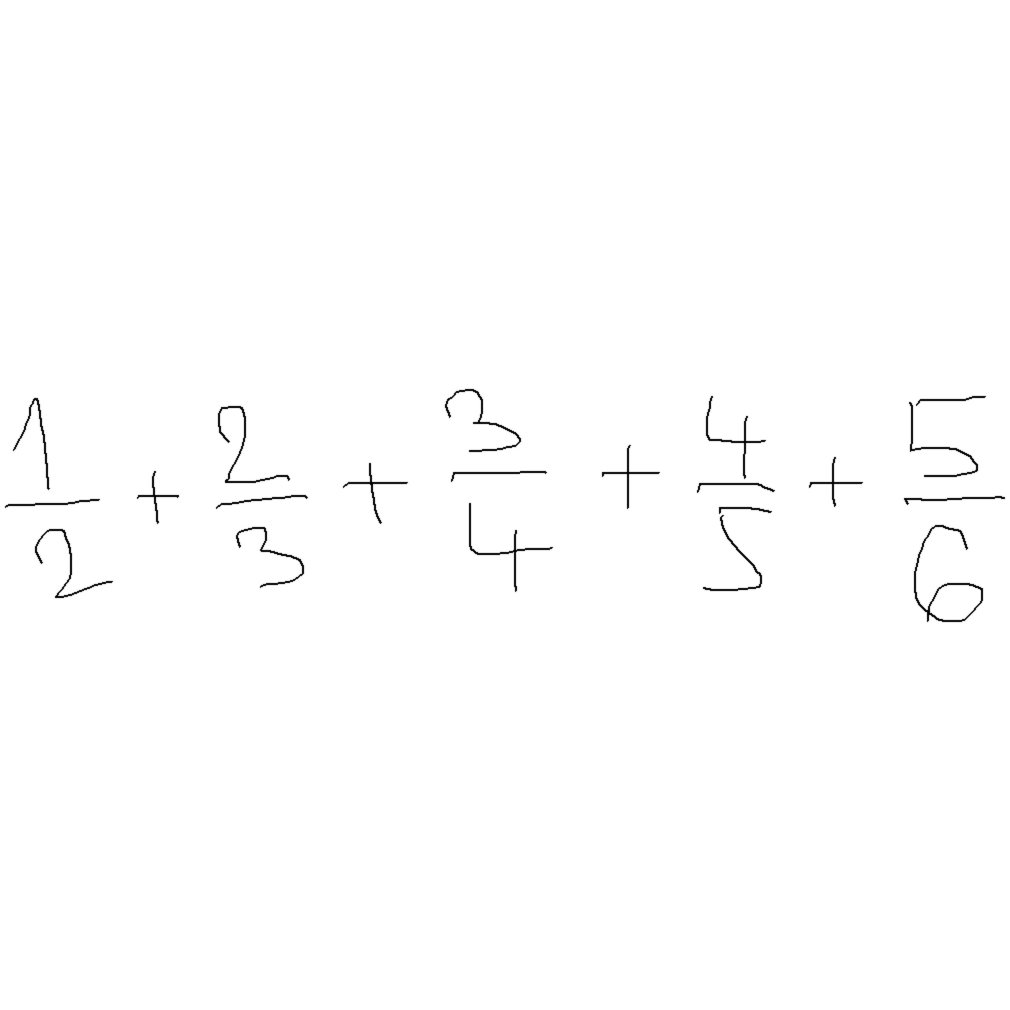 1/2 + 2/3 + 3/4 + 4/5 + 5/6